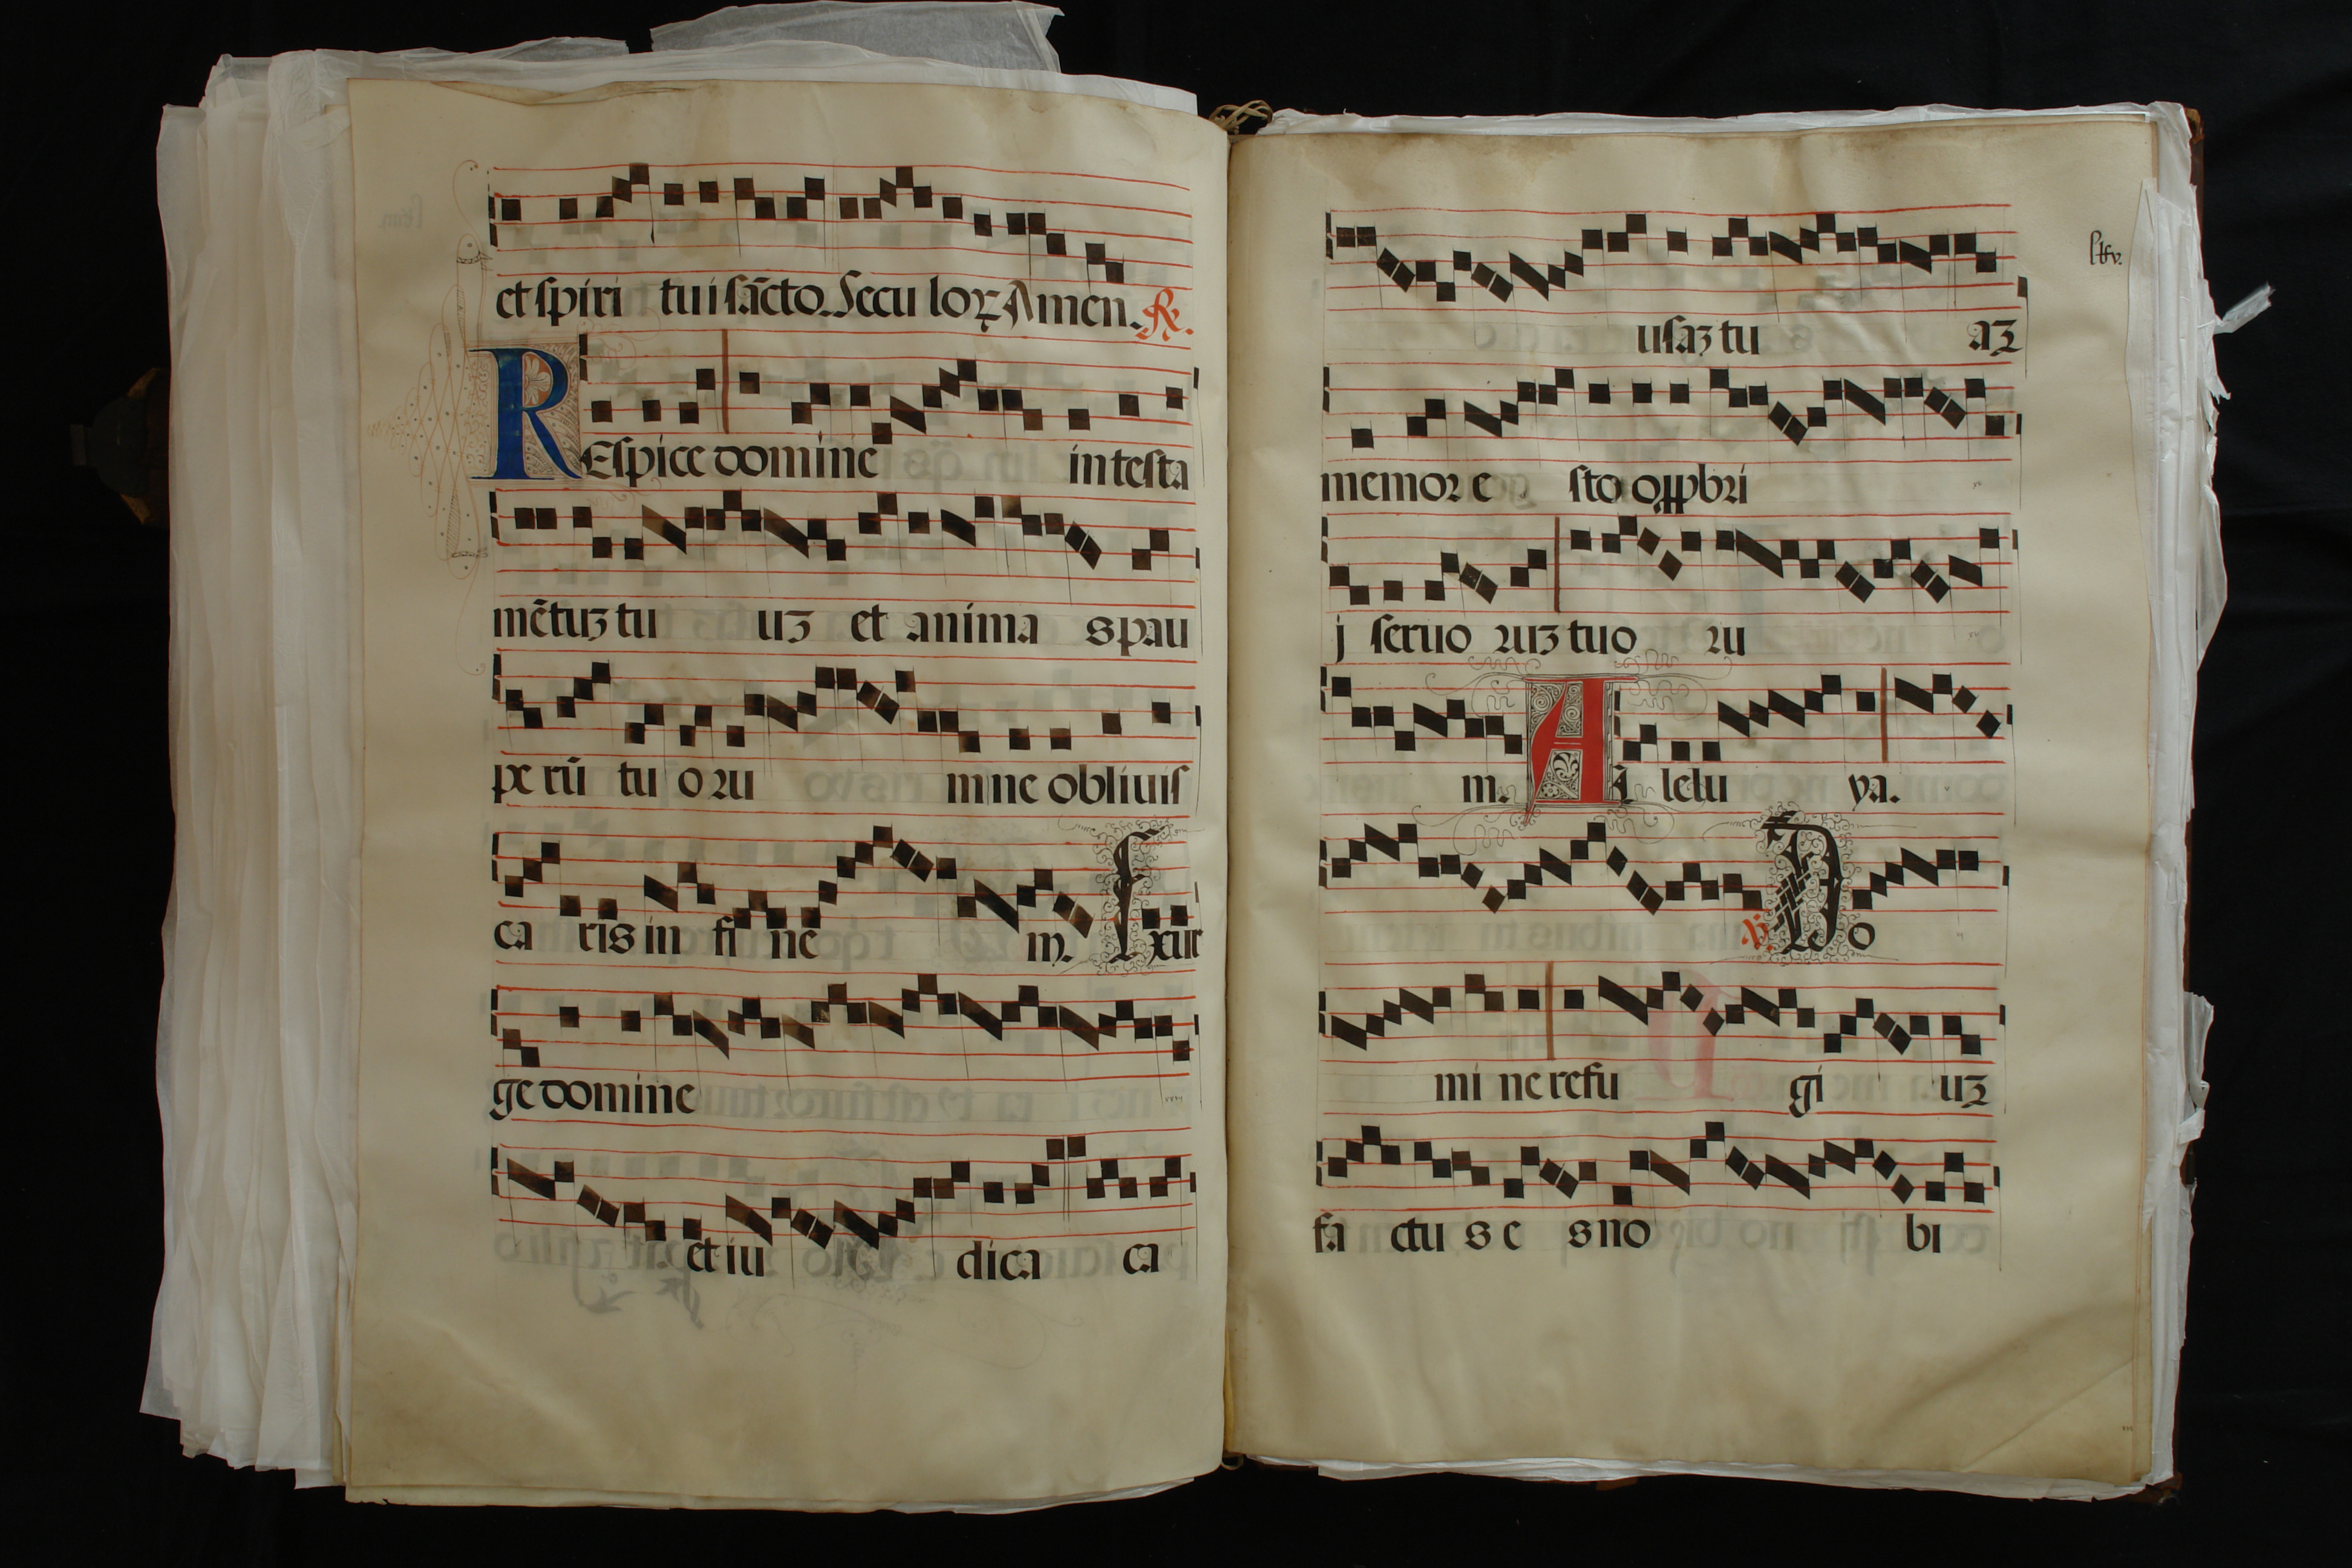 et spiri tui sācto. Seculoꝝ Amen. ℟.
REspice domine in testa
mētuꝫ tu uꝫ et anima s pau
pe rū tu oꝛu m ne obliuis
ca ris in fi ne m. Exur
ge domine
et iu dica ca
usaꝫ tu aꝫ
memoꝛ e sto oppbꝛi
j seruo ꝛuꝫ tuo ꝛu
m. Al lelu ya.
℣. Do
mi ne refu gi uꝫ
fa ctu s e s no bi